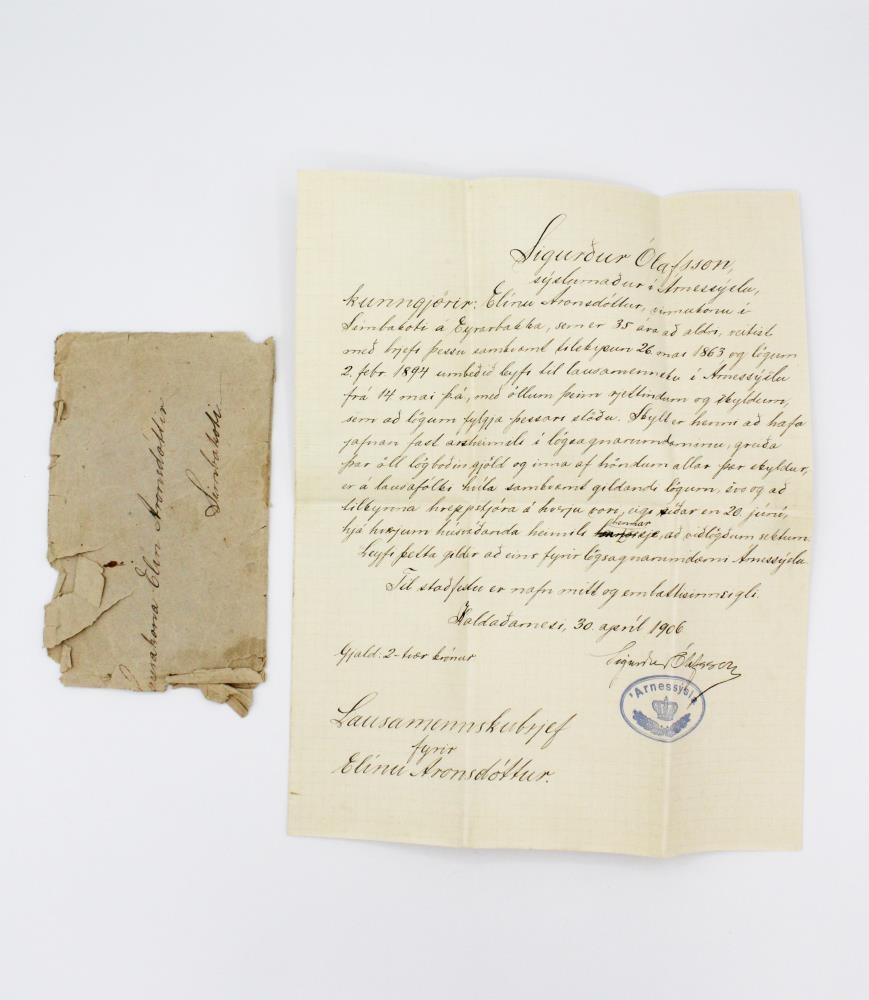 Sigurður Ólafsson,
sýslumaður í Árnessýslu,
kunngjörir: Elínu Aronsdóttur, vinnukonu í
Simbakoti á Eyrarbakka, sem er 35 ára að aldri, veitist
með brjefi þessu samkvæmt tilskipun 26. maí 1863 og lögum
2. febr. 1894 umbeðið leyfi til lausamennsku í Árnessýslu
frá 14 maí þ.á., með öllum þeim rjettindum og skyldum,
sem að lögum fylgja þessari stöðu. Skylt er henni að hafa
jafnan fast ársheimili í lögsagnarumdæminu, greiða
þar öll lögboðin gjöld og inna af höndum allar þær skyldur,
er á lausafólki hvíla samkvæmt gildandi lögum, svo og að
tilkynna hreppstjóra á hverju vori, eigi síðar en 20. júní,
hjá hverjum húsráðanda heimili hennar sje, að viðlögðum sektum.
Leyfi þetta gildir að eins fyrir lögsagnarumdæmi Árnessýslu
Til staðfestu er nafn mitt og embættisinnsigli.
Kaldaðarnesi, 30. apríl 1906
Gjald: 2 - tvær krónur
Sigurður Ólafsson
Árnessýsla
Lausamennskubrjef
fyrir
Elínu Aronsdóttur.
Lausakona Elín Aronsdóttir
Simbakoti